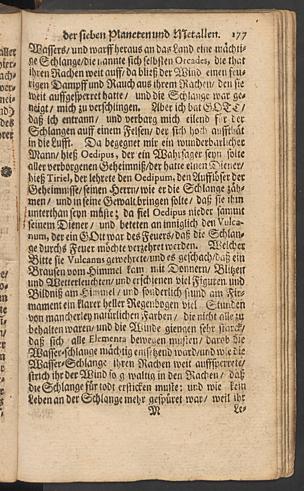 der sieben Planeten und Metallen. 177
Wassers/ und warff heraus an das Land eine mächti-
ge Schlange/die nannte sich selbsten Oreades, die that
ihren Rachen weit auff/da bließ der Wind einen feu-
rigen Dampff und Rauch aus ihrem Rachen/den sie
weit auffgesperret hatte/ und die Schlange war ge-
neigt/mich zu verschlingen. Aber ich bat GOTT/
daß ich entrann/ und verbarg mich eilend für der
Schlangen auff einem Felsen/der sich hoch
in die Lufft. Da begegnet mir ein wunderbarlicher
Mann/hieß Oedipus, der ein Wahrsager seyn solte
aller verborgenen Geheimniß/der hatte einen Diener/
hieß Tiriel, der lehrete den Oedipum, den Aufflöser der
Geheimnisse/seinen Herrn/wie er die Schlange zäh-
men/ und in seine Gewalt bringen solte/ daß sie ihm
unterthan seyn müste; da fiel Oedipus nieder sammt
seinem Diener/ und beteten an inniglich den Vulca-
num, der ein GOtt war des Feuers/daß die Schlan-
ge durchs Feuer möchte verzehret werden. Welcher
Bitte sie Vulcanus gewehrete/und es geschach/daß ein
Brausen vom Himmel kam mit Donnern/ Blitzen
und Wetterleuchten/und erschienen viel Figuren und
Bildniß am Himmel/ und sonderlich stund am Fir-
mament ein klarer heller Regenbogen viel Stunden
von mancherley natürlichen Farben/ die nicht alle zu
behalten waren/ und die Winde giengen sehr starck/
daß sich alle Elementa bewegen musten/ darob die
Wasser-schlange mächtig entsetzend ward/und wie die
Wasser-Schlange ihren Rachen weit auffsperrete/
strich ihr der Wind so waltig in den Rachen/ daß
die Schlange für todt ersticken muste; und wie kein
Leben an der Schlange mehr gespüret war/ weil ihr
M Le-